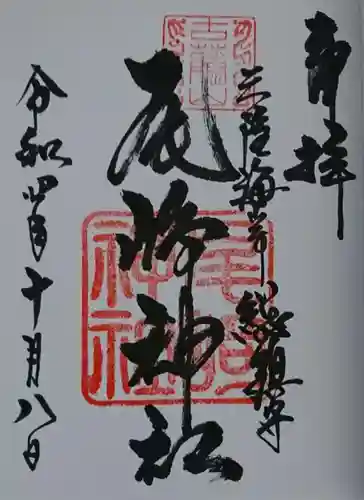 奉拝
三陸海岸総鎮守
尾崎神社
令和四年十月八日
尾崎神社